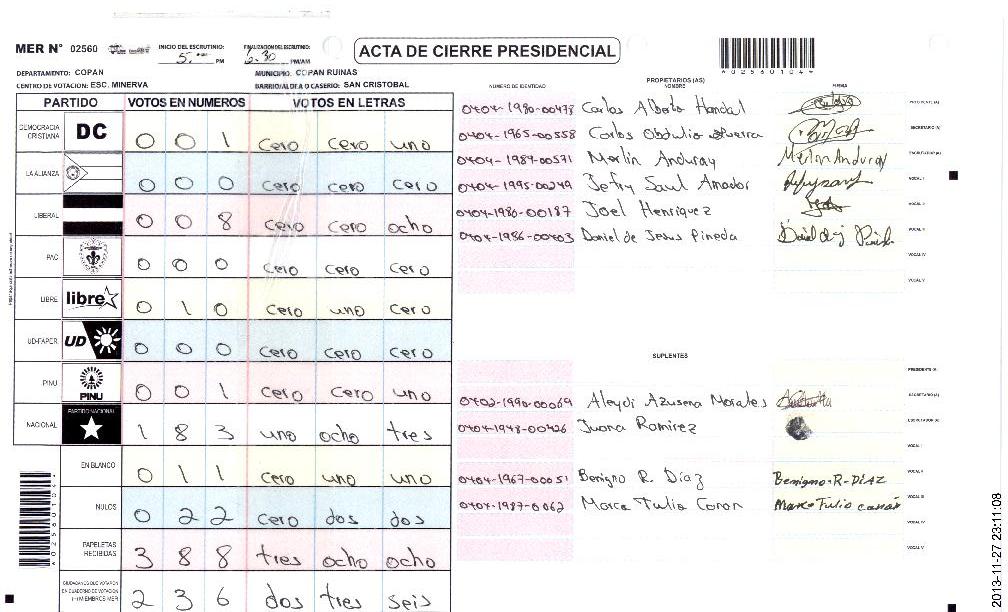 MER N° 02560 INICIO DEL ESCRUTINIO: 5: PM FINALIZACIÓN DEL ESCRUTINIO: 6:30 PM/AM
ACTA DE CIERRE PRESIDENCIAL
DEPARTAMENTO: COPAN MUNICIPIO: COPAN RUINAS
CENTRO DE VOTACION: ESC. MINERVA BARRIO/ALDEA O CASERIO: SAN CRISTOBAL
PARTIDO VOTOS EN NUMEROS VOTOS EN LETRAS
DEMOCRACIA CRISTIANA DC 0 0 1 cero cero uno
LA ALIANZA 0 0 0 cero cero cero
LIBERAL 0 0 8 cero cero ocho
PAC 0 0 0 cero cero cero
LIBRE libre 0 1 0 cero uno cero
UD-FAPER UD 0 0 0 cero cero cero
PINU PINU 0 0 1 cero cero uno
NACIONAL PARTIDO NACIONAL 1 8 3 uno ocho tres
EN BLANCO 0 1 1 cero uno uno
NULOS 0 2 2 cero dos dos
PAPELETAS RECIBIDAS 3 8 8 tres ocho ocho
CIUDADANOS QUE VOTARON EN CUADERNO DE VOTACION (+) MIEMBROS MER 2 3 6 dos tres seis
A02560104
PROPIETARIOS (AS)
NUMERO DE IDENTIDAD NOMBRE FIRMA
0404-1980-00478 Carlos Alberto Handal PRESIDENTE (A)
0404-1965-00558 Carlos Obdulio Guerra SECRETARIO (A)
0404-1989-00571 Merlin Anduray Merlin Anduray ESCRUTADOR (A)
0404-1995-00249 Jefry Saul Amador VOCAL I
0404-1980-00187 Joel Henriquez VOCAL II
0404-1986-00403 Daniel de Jesus Pineda VOCAL III
VOCAL IV
VOCAL V
SUPLENTES
PRESIDENTE (A)
0402-1990-00069 Aleydi Azusena Morales SECRETARIO (A)
0404-1948-00426 Juana Ramirez ESCRUTADOR (A)
VOCAL I
0404-1967-00051 Benigno R. Díaz Benigno-R-DíAZ VOCAL II
0404-1987-0062 Marco Tulio Coron VOCAL III
VOCAL IV
VOCAL V
A02560104
2013-11-27 23:11:08